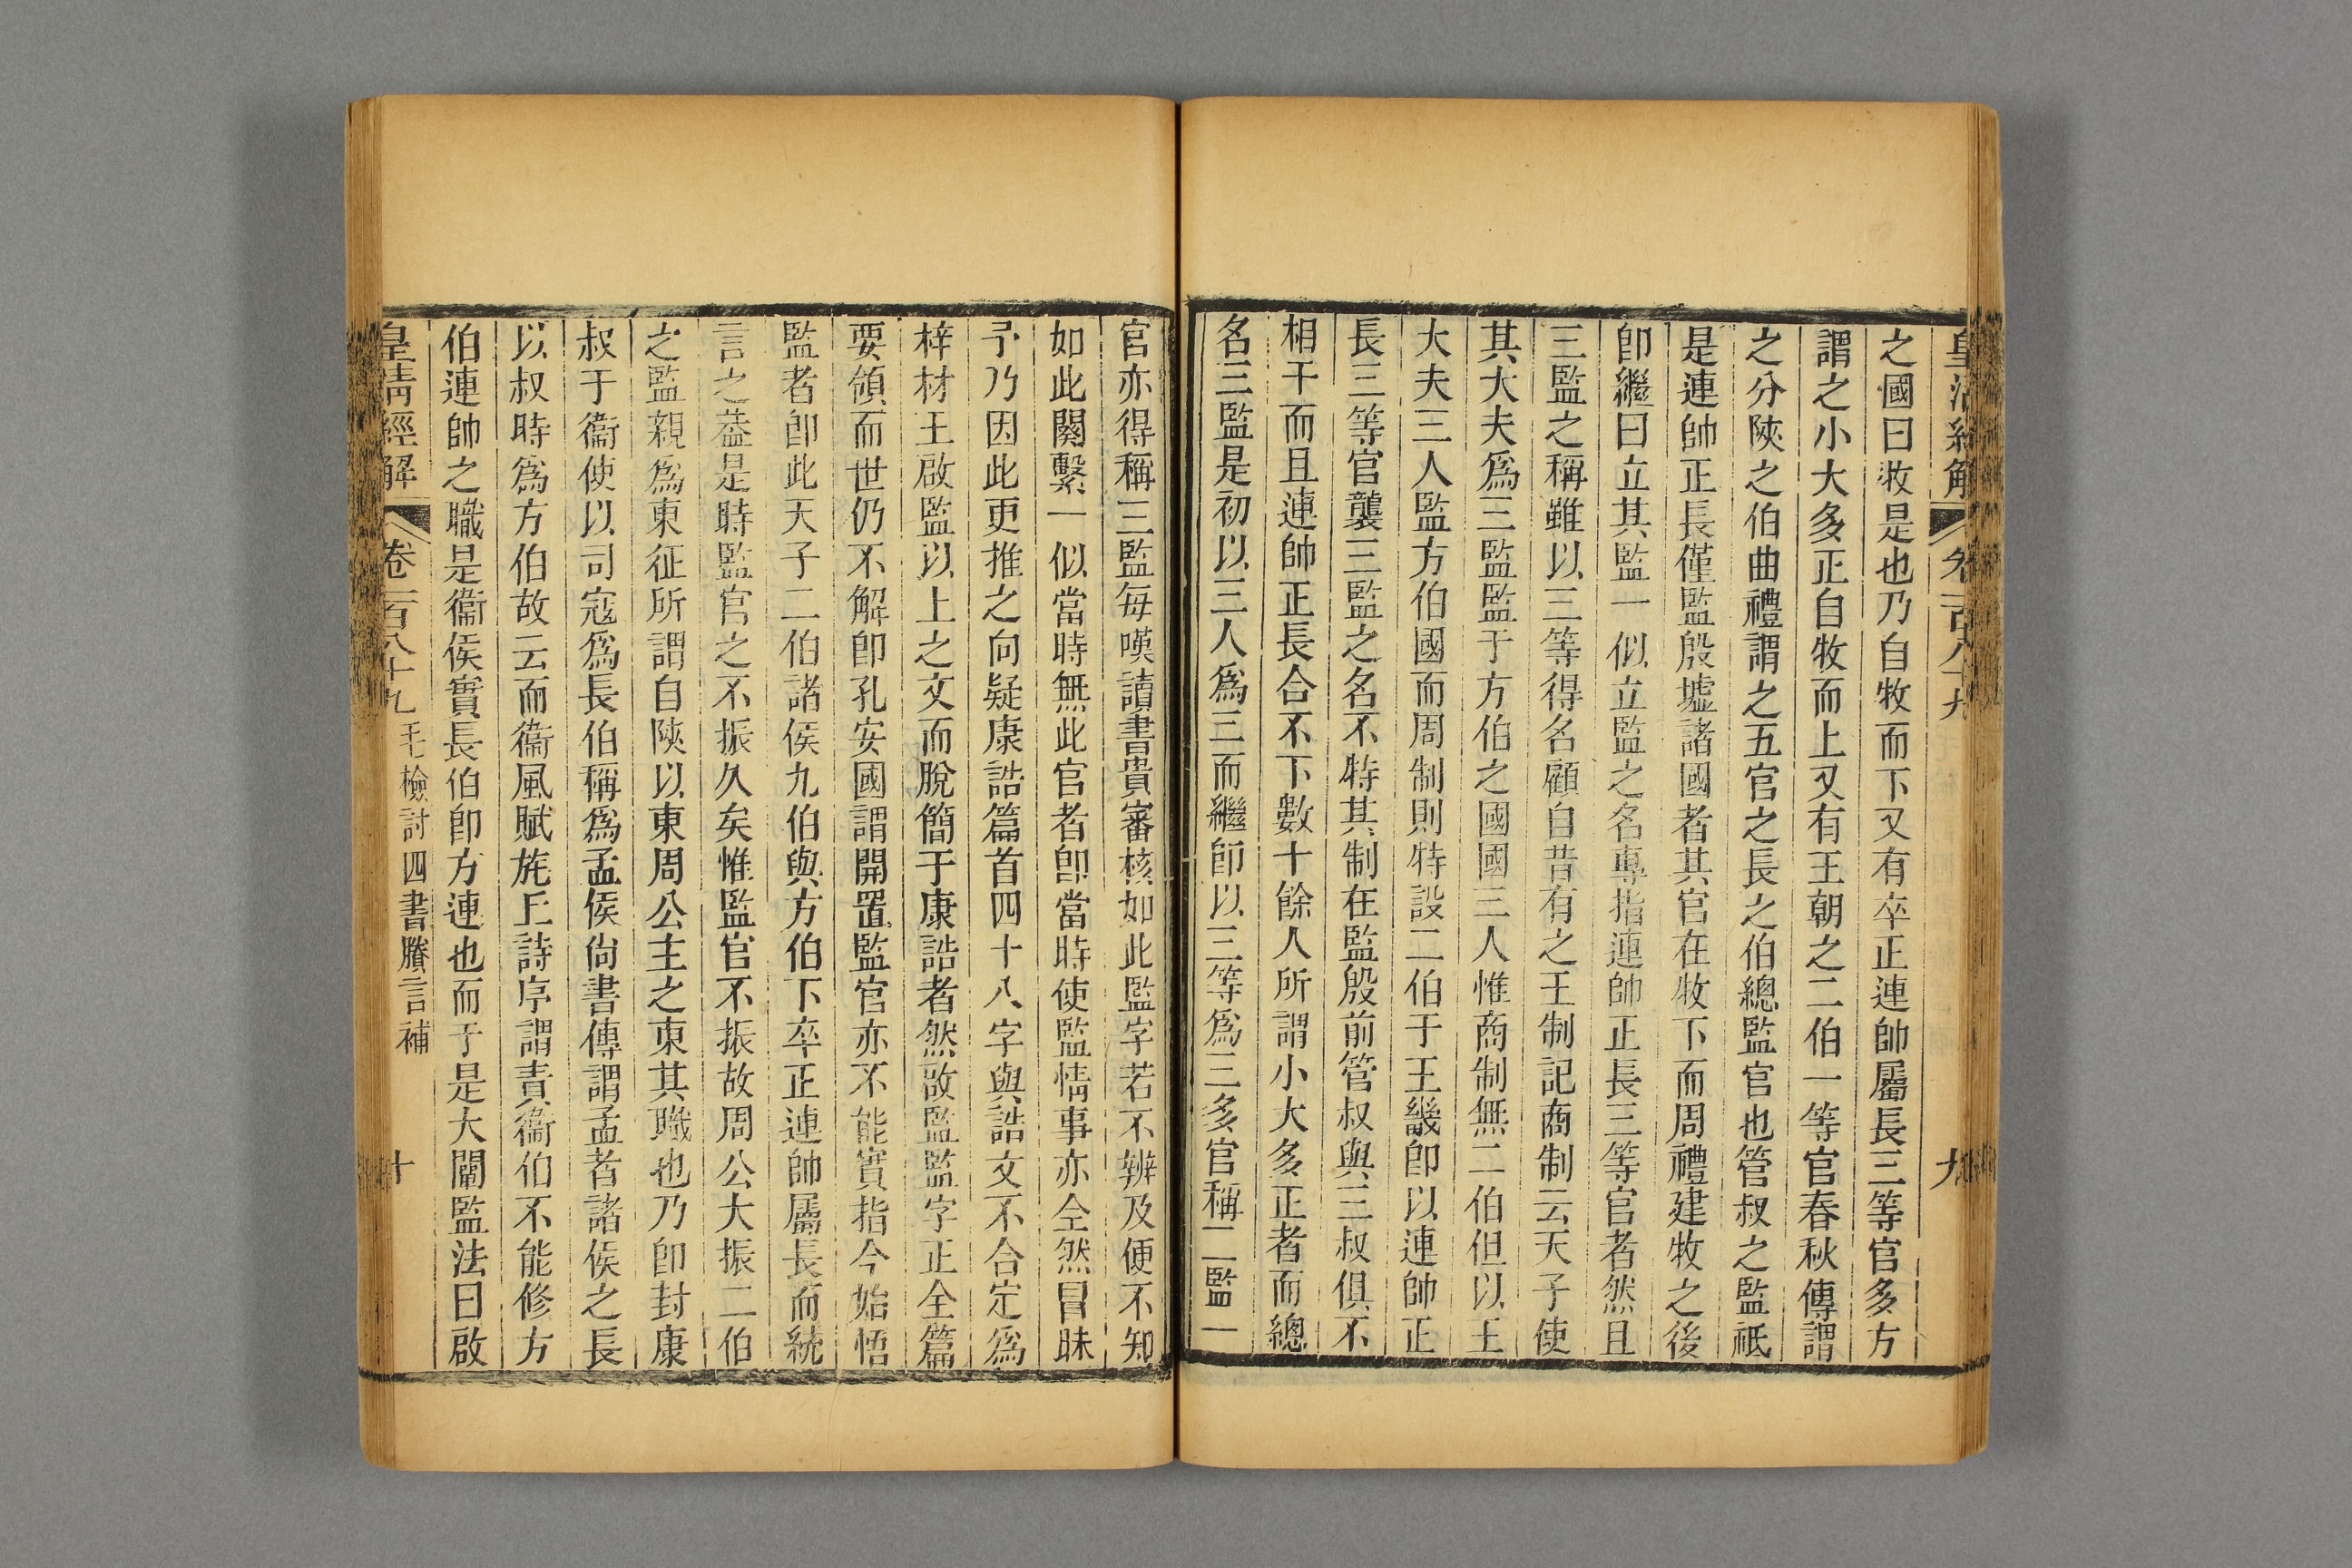 皇清經解 卷一百八十九 九
之國曰牧是也乃自牧而下又有卒正連帥屬長三等官多方
謂之小大多正自牧而上又有王朝之二伯一等官春秋傳謂
之分陜之伯曲禮謂之五官之長之伯總監官也管叔之監祗
是連帥正長僅監殷墟諸國者其官在牧下而周禮建牧之後
卽繼曰立其監一似立監之名專指連帥正長三等官者然且
三監之稱雖以三等得名顧自昔有之王制記商制云天子使
其大夫爲三監監于方伯之國國三人惟商制無二伯但以王
大夫三人監方伯國而周制則特設二伯于王畿卽以連帥正
長三等官襲三監之名不特其制在監殷前管叔與三叔俱不
相干而且連帥正長合不下數十餘人所謂小大多正者而總
名三監是初以三人爲三而繼卽以三等爲三多官稱三監一
官亦得稱三監每嘆讀書貴審核如此監字若不辨及便不知
如此關繫一似當時無此官者卽當時使監情事亦全然冒昧
予乃因此更推之向疑康誥篇首四十八字與誥文不合定爲
梓材王啟監以上之文而脫簡于康誥者然啟監監字正全篇
要領而世仍不解卽孔安國謂開置監官亦不能實指今始悟
監者卽此天子二伯諸侯九伯與方伯下卒正連帥屬長而統
言之葢是時監官之不振久矣惟監官不振故周公大振二伯
之監親爲東征所謂自陜以東周公主之東其職也乃卽封康
叔于衞使以司寇爲長伯稱爲孟侯尙書傳謂孟者諸侯之長
以叔時爲方伯故云而衞風賦旄丘詩序謂責衞伯不能修方
伯連帥之職是衞侯實長伯卽方連也而于是大闡監法曰啟
皇清經解 卷一百八十九 毛檢討四書賸言補 十